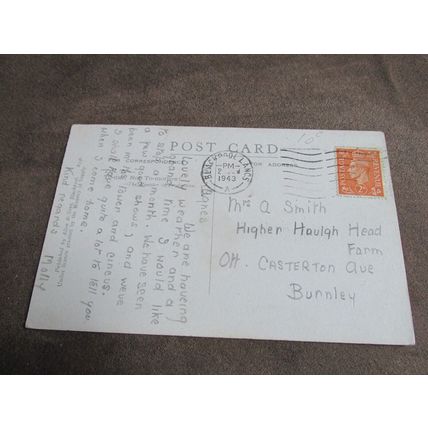 POST CARD
CORRESPONDENCE
FOR ADDRESS
100
BLACKPOOL LANCS
PM
2
1943
A
Agnes
We are having
lovely weather and a
grand time I would like
to stay a month. We have seen
a few good shows, and we've
been up the Tower and Circus.
I shall have quite a lot to tell you
when I come home.
Kind regards
Molly
Mrs A Smith
Higher Haulgh Head
Farm
Off. CASTERTON Ave
Burnley